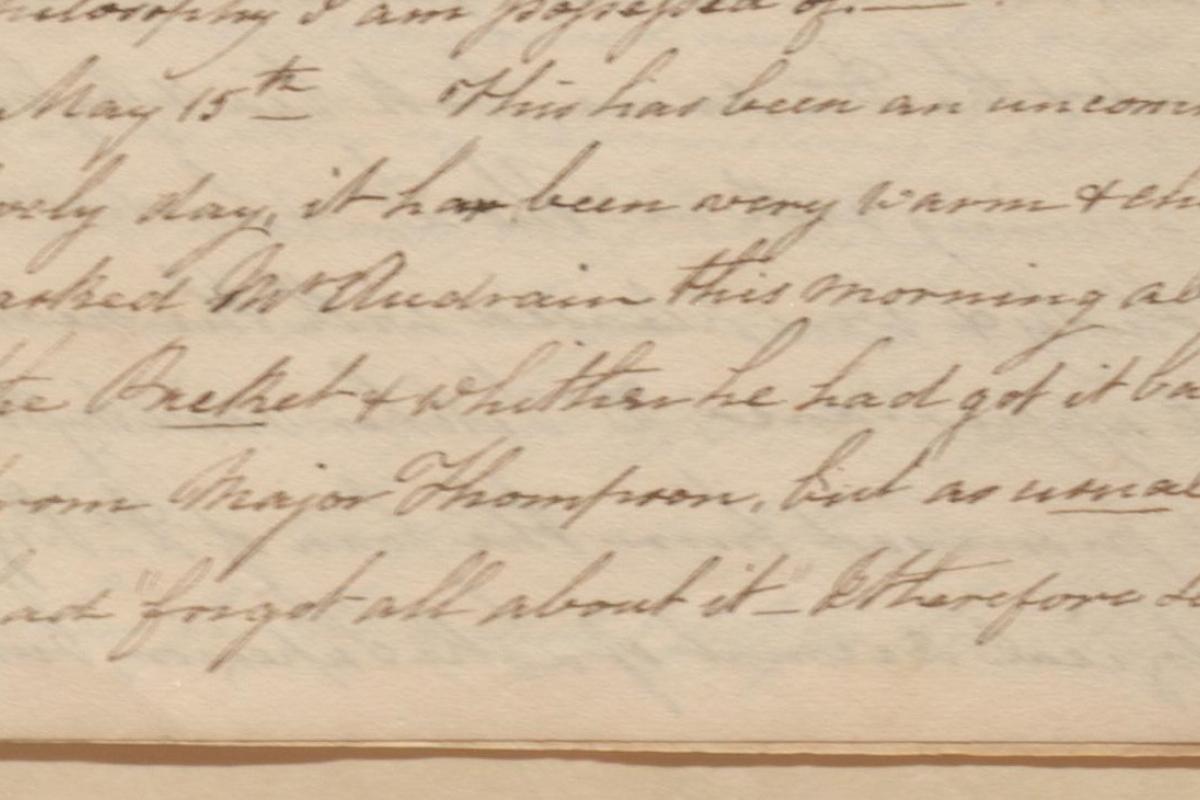 philosophy I am possessed of.—
May 15th This has been an uncom
vely day, it has been very warm & ch
asked Mr Audrain this morning ab
the Bucket & whither he had got it ba
from Major Thompson, but as usual
had "forgot all about it" – & therefore